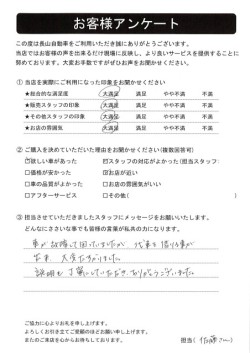 お客様アンケート
この度は長山自動車をご利用いただき誠にありがとうございます。
当店ではお客様の声を出来るだけ現場に反映し、より良いサービスを提供することに
努めております。大変お手数ですがぜひお声をお聞かせください。
① 当店を実際にご利用になった印象をお聞かせください
★総合的な満足度 大満足 満足 やや不満 不満
★販売スタッフの印象 大満足 満足 やや不満 不満
★その他スタッフの印象 大満足 満足 やや不満 不満
★お店の雰囲気 大満足 満足 やや不満 不満
② ご購入を決めていただいた理由をお聞かせください(複数回答可)
□欲しい車があった □スタッフの対応がよかった(担当スタッフ:
□価格が安かった □お店が近い
□車の品質がよかった □お店の雰囲気がいい
□アフターサービス □その他(
③ 担当させていただきましたスタッフにメッセージをお願いいたします。
どんなにささいな事でも皆様の言葉が私共の力になります。
車が故障して困っていましたが、代車を借りる事が
出来、大変たすかりました。
説明も丁寧にしていただき、ありがとうございました。
ご協力に心よりお礼を申し上げます。
よろしくお引き立てご愛顧のほどお願い申し上げます。
またのご来店を心からお待ちしております。
担当( 佐藤さん )